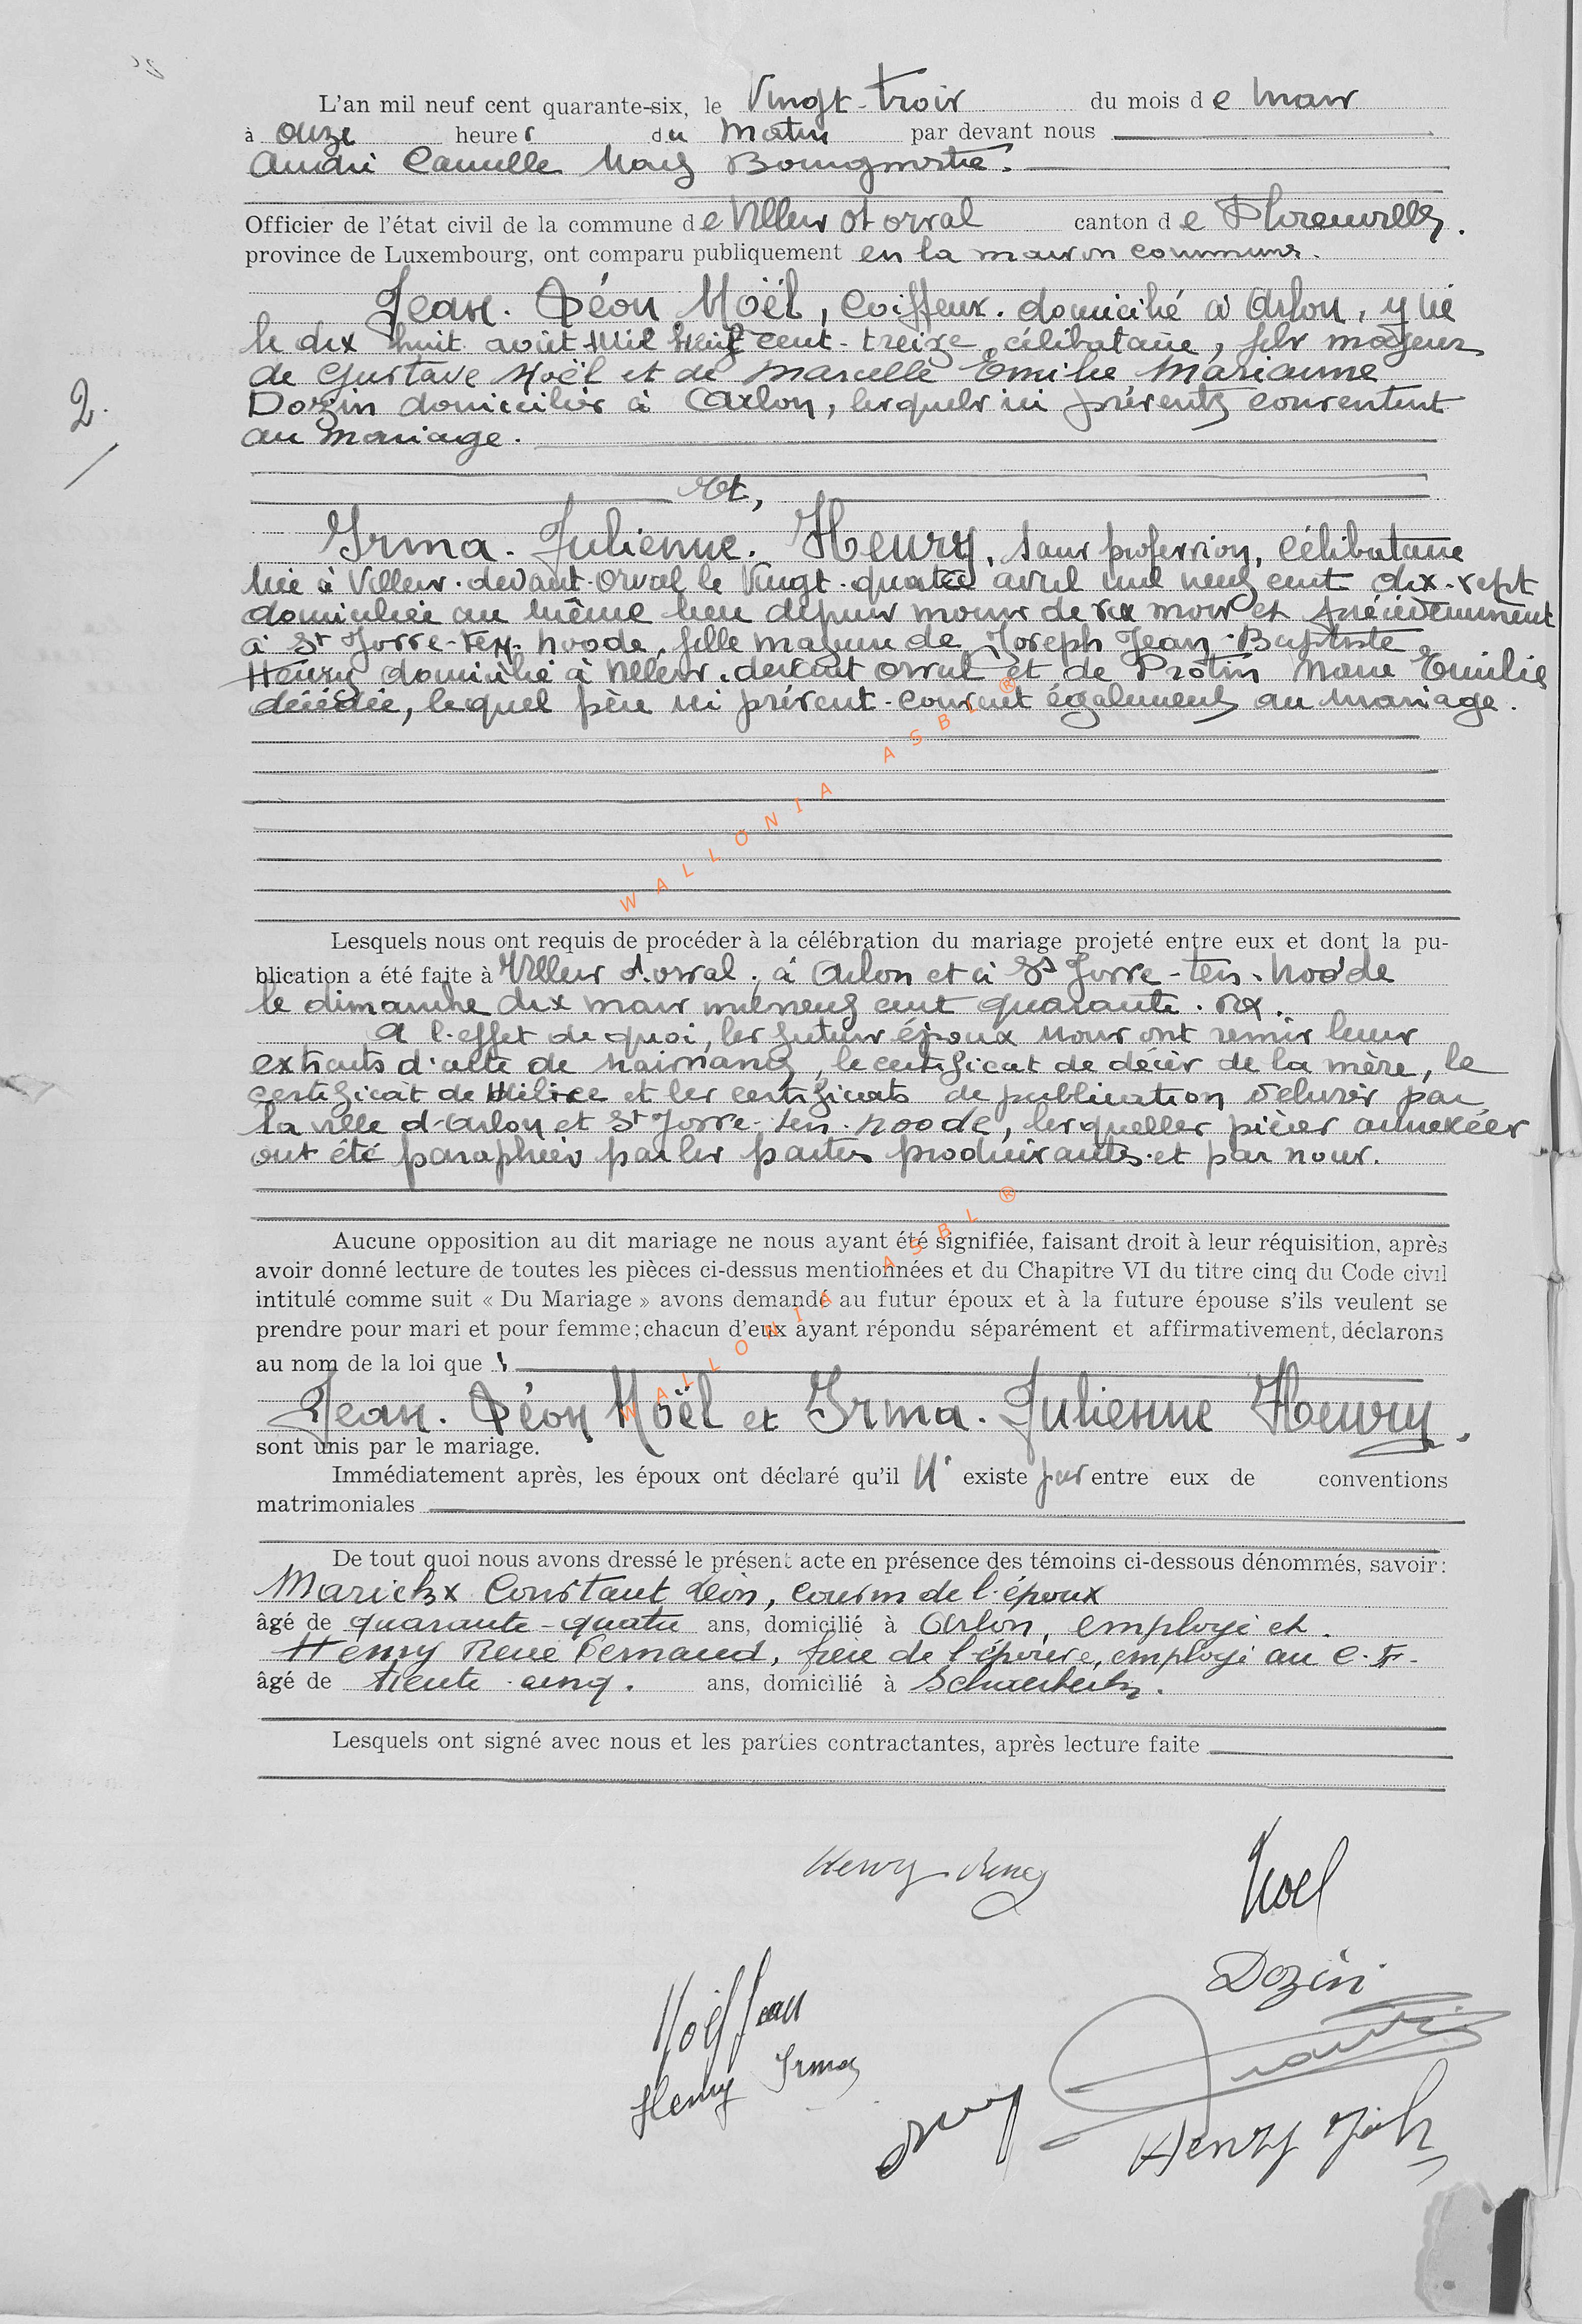 L'an mil neuf cent quarante-six, le Vingt-trois du mois de Mars
à onze heures du Matin par devant nous
André Camille
Officier de l'état civil de la commune de Villers dt orval canton de Florenville.
province de Luxembourg, ont comparu publiquement en la maison commune.
Jean. Léon Noël, Coiffeur. domicilié à Arlon, y né
le dix huit août mil neuf cent-treize, célibataire, fils majeur
de Gustave Noël et de Marcelle Emilie Marianne
Dozin domiciliés à Arlon, lesquels ici présents consentent
au mariage.
2.
Et,
Irma. Julienne. Henry, sans profession, célibataire
née à Villers-devant-Orval le Vingt-quatre avril mil neuf cent dix-sept
domiciliée au même lieu depuis moins de six mois et précédemment
à St Josse-ten-Noode, fille majeure de Joseph Jean-Baptiste
Henry domicilié à Villers-devant orval et de Protin Marie Emilie
décédée, lequel père ici présent-consent également au mariage.
WALLONIA ASBL ®
Lesquels nous ont requis de procéder à la célébration du mariage projeté entre eux et dont la pu-
blication a été faite à Villers d.orval, à Arlon et à St Josse-ten-Noode
le dimanche dix mars mil neuf cent quarante-six.
A l'effet de quoi, les futurs époux nous ont remis leurs
extraits d'acte de naissance, le certificat de décès de la mère, le
certificat de Milice et les certificats de publication délivrés par
la ville d'Arlon et St Josse-ten-Noode, lesquelles pièces annexées
ont été paraphées par les parties produisantes et par nous.
WALLONIA ASBL ®
Aucune opposition au dit mariage ne nous ayant été signifiée, faisant droit à leur réquisition, après
avoir donné lecture de toutes les pièces ci-dessus mentionnées et du Chapitre VI du titre cinq du Code civil
intitulé comme suit « Du Mariage » avons demandé au futur époux et à la future épouse s'ils veulent se
prendre pour mari et pour femme; chacun d'eux ayant répondu séparément et affirmativement, déclarons
au nom de la loi que :
Jean. Léon Noël et Irma. Julienne Henry.
sont unis par le mariage.
Immédiatement après, les époux ont déclaré qu'il n' existe pas entre eux de conventions
matrimoniales
De tout quoi nous avons dressé le présent acte en présence des témoins ci-dessous dénommés, savoir:
Constant Léon, cousin de l'époux
âgé de quarante-quatre ans, domicilié à Arlon, employé et.
Henry René Fernand, frère de l'épouse, employé au C.F.
âgé de trente-cinq. ans, domicilié à Schaerbeek.
Lesquels ont signé avec nous et les parties contractantes, après lecture faite
Henry René
Noel
Dozin
Noël Jean
Henry Irma
Henry